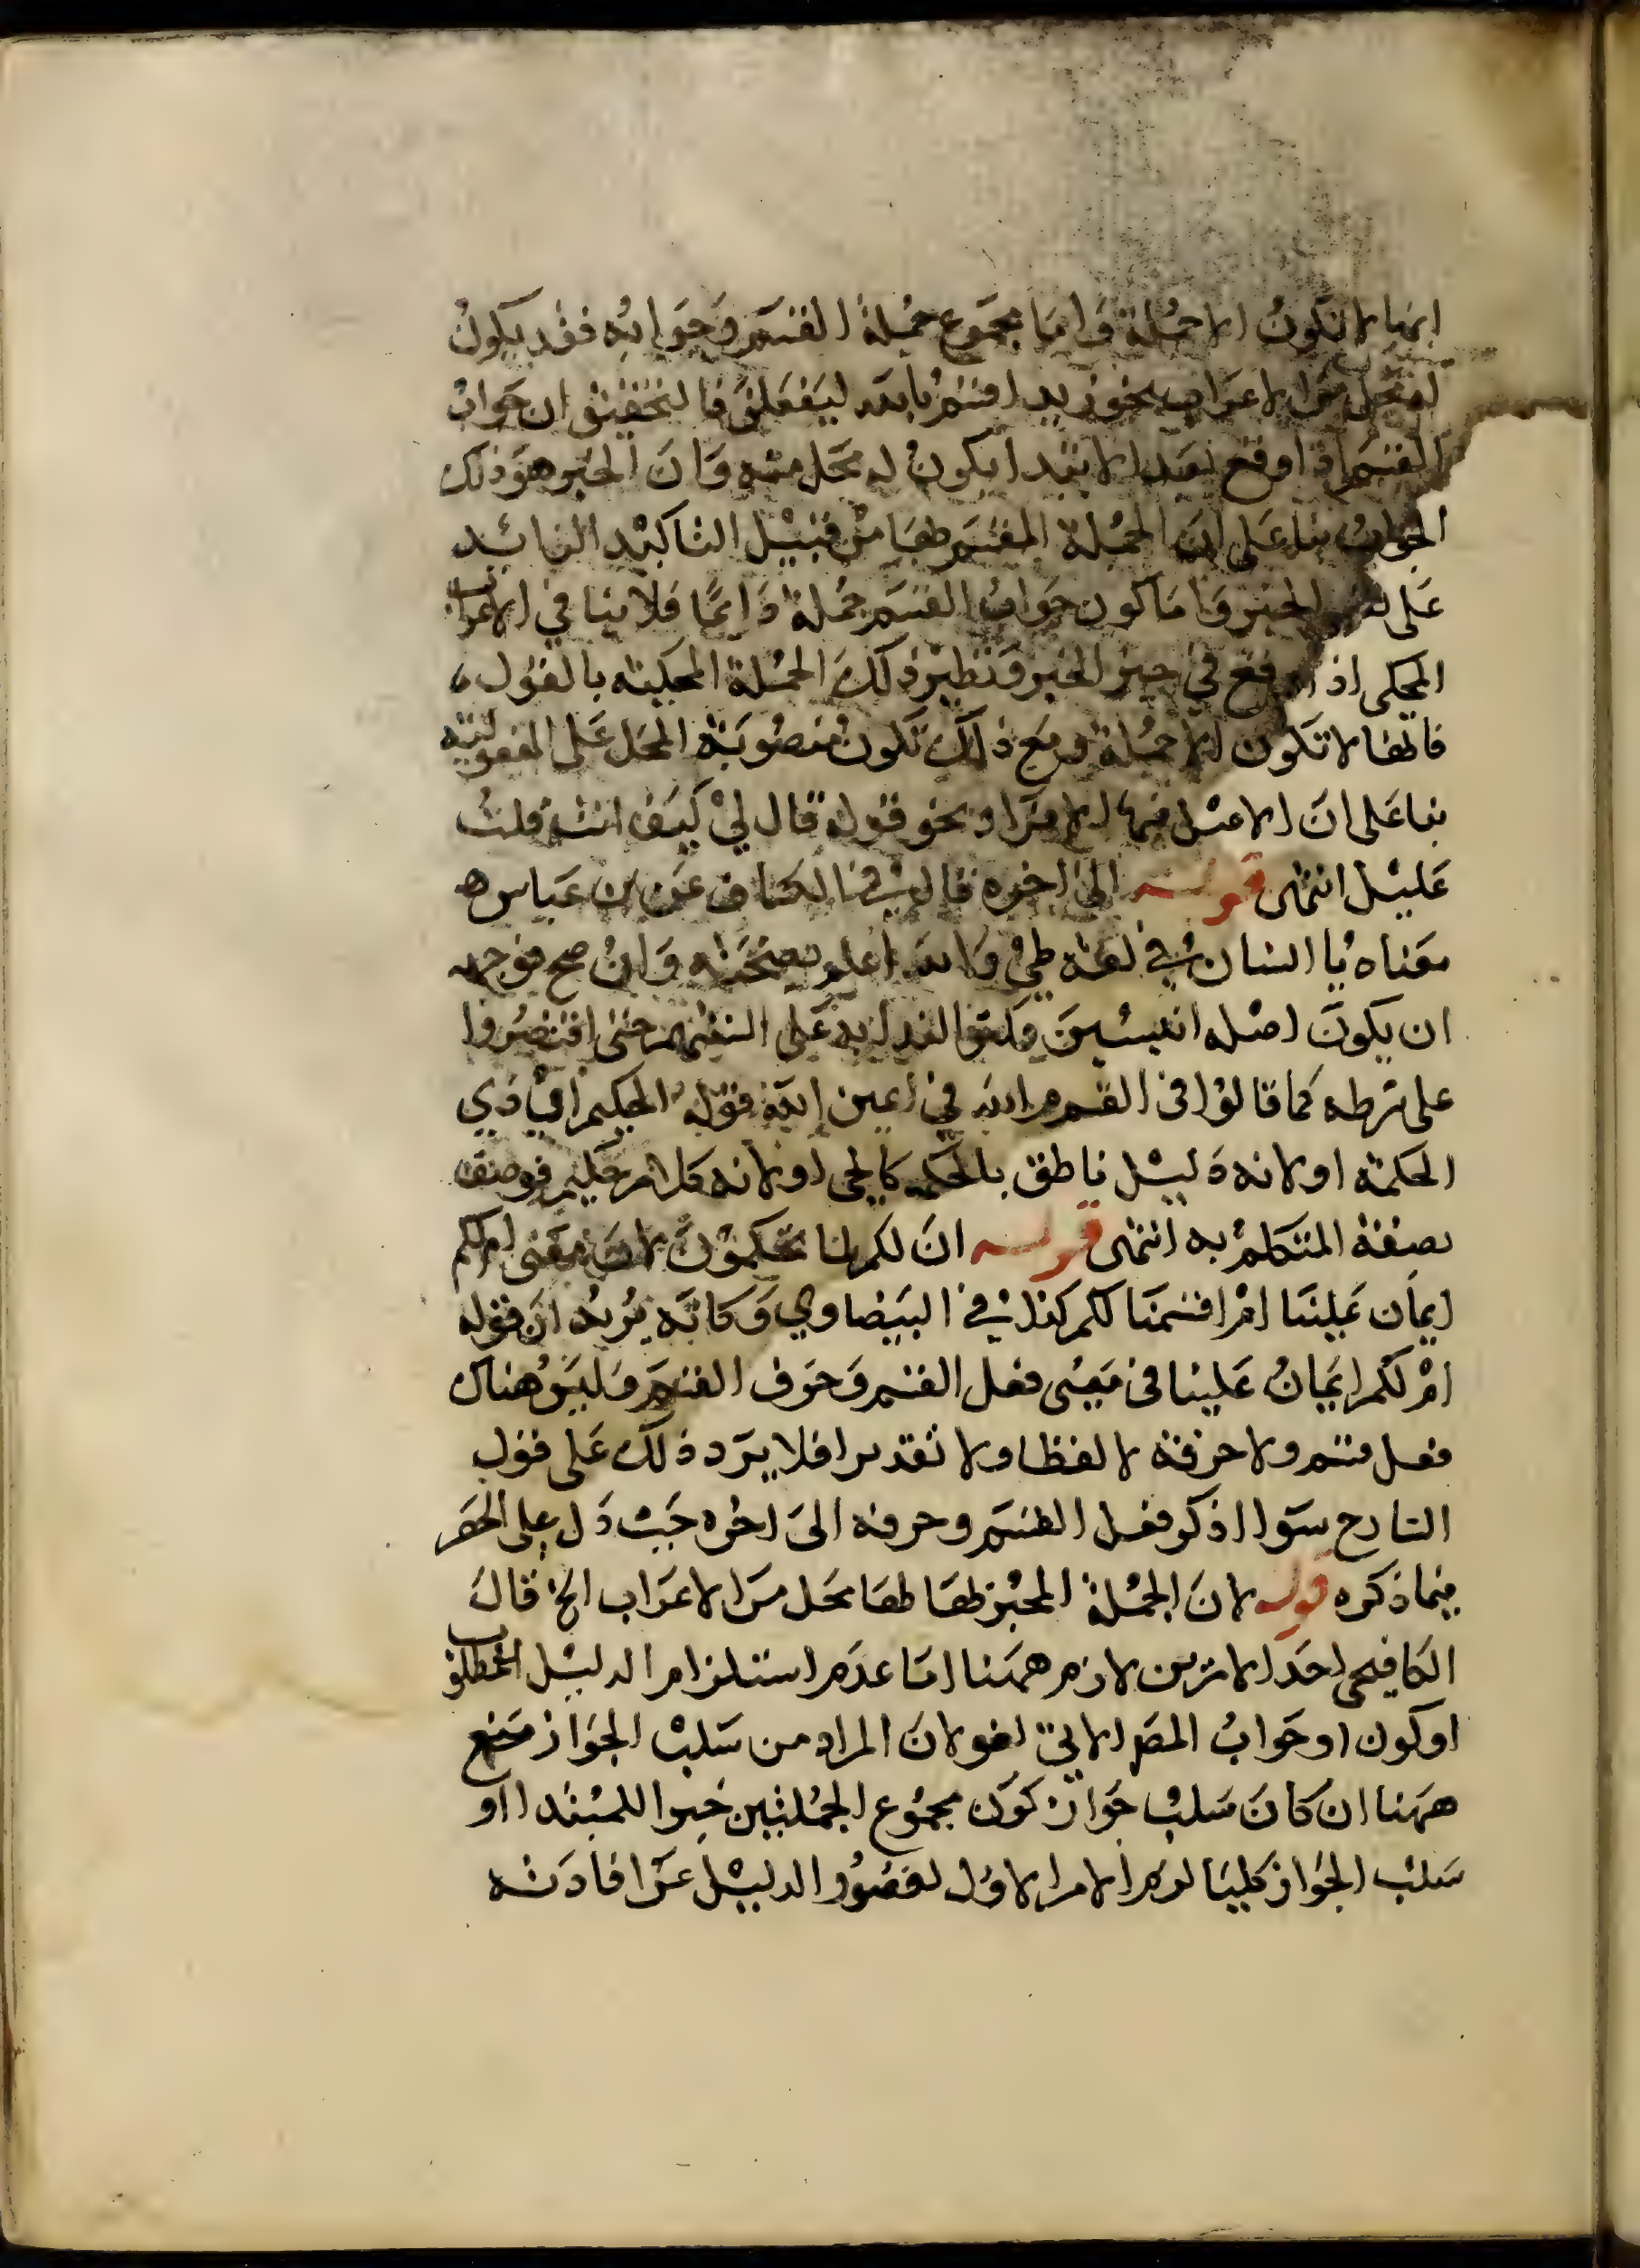 انها لا تكون الا جملة واما مجموع جملة القسم وجوابه فقد يكون
له محل من الاعراب نحو زيد اقسم بالله ليفعلن فالتحقيق ان جواب
القسم اذا وقع بعد الابتدا يكون له محل منه وان الخبر هو ذلك
الجواب بنا على ان الجملة المقسم طها من قبيل التاكيد الزائد
على الخبر واما كون جواب القسم جملة دائما فلا ينافي الاعراب
المحكى اذا وقع في حيز الخبر ونظير ذلك الجملة المحكيه بالقول
فانها لا تكون الا جملة ومع ذلك تكون منصوبة المحل على المفعولية
بنا على ان الاصل فيها الافراد ونحو قوله قال لي كيف انت قلت
عليل انتهى قوله الى اخره قال في الكشاف عن ابن عباس
معناه يا انسان في لغة طي والله اعلم بصحته وان صح فوجهه
ان يكون اصله انيسين وكثر الندا به على السنتهم حتى اقتصروا
على شرطه كما قالوا فى القسم م الله في ايمن الله قوله الحكيم اي ذي
الحكمة او لانه دليل ناطق بالحكمة كالحى او لانه كلام حكيم فوصف
بصفة المتكلم به انتهى قوله ان لكم لما تحكمون لان معنى ام لكم
ايمان علينا ام اقسمنا لكم كذا في البيضاوي وكانه يريد ان قوله
ام لكم ايمان علينا فى معنى فعل القسم وحرف القسم وليس هناك
فعل قسم ولا حرفه لا لفظا ولا تقديرا فلا يرد ذلك على قول
الشارح سوا اذكر فعل القسم وحرفه الى اخره حيث دل على الحصر
فيما ذكره قوله لان الجملة المخبر طها طها محل من الاعراب الخ قال
الكافيجى احد الامرين لازم ههنا اما عدم استلزام الدليل المطلوب
او كون اوجواب المص الاتي لغو لان المراد من سلب الجواز منع
ههنا ان كان سلب جواز كون مجموع الجملتين خبرا للمبتدا او
سلب الجواز كليا لزم الامر الاول لقصور الدليل عن افادته